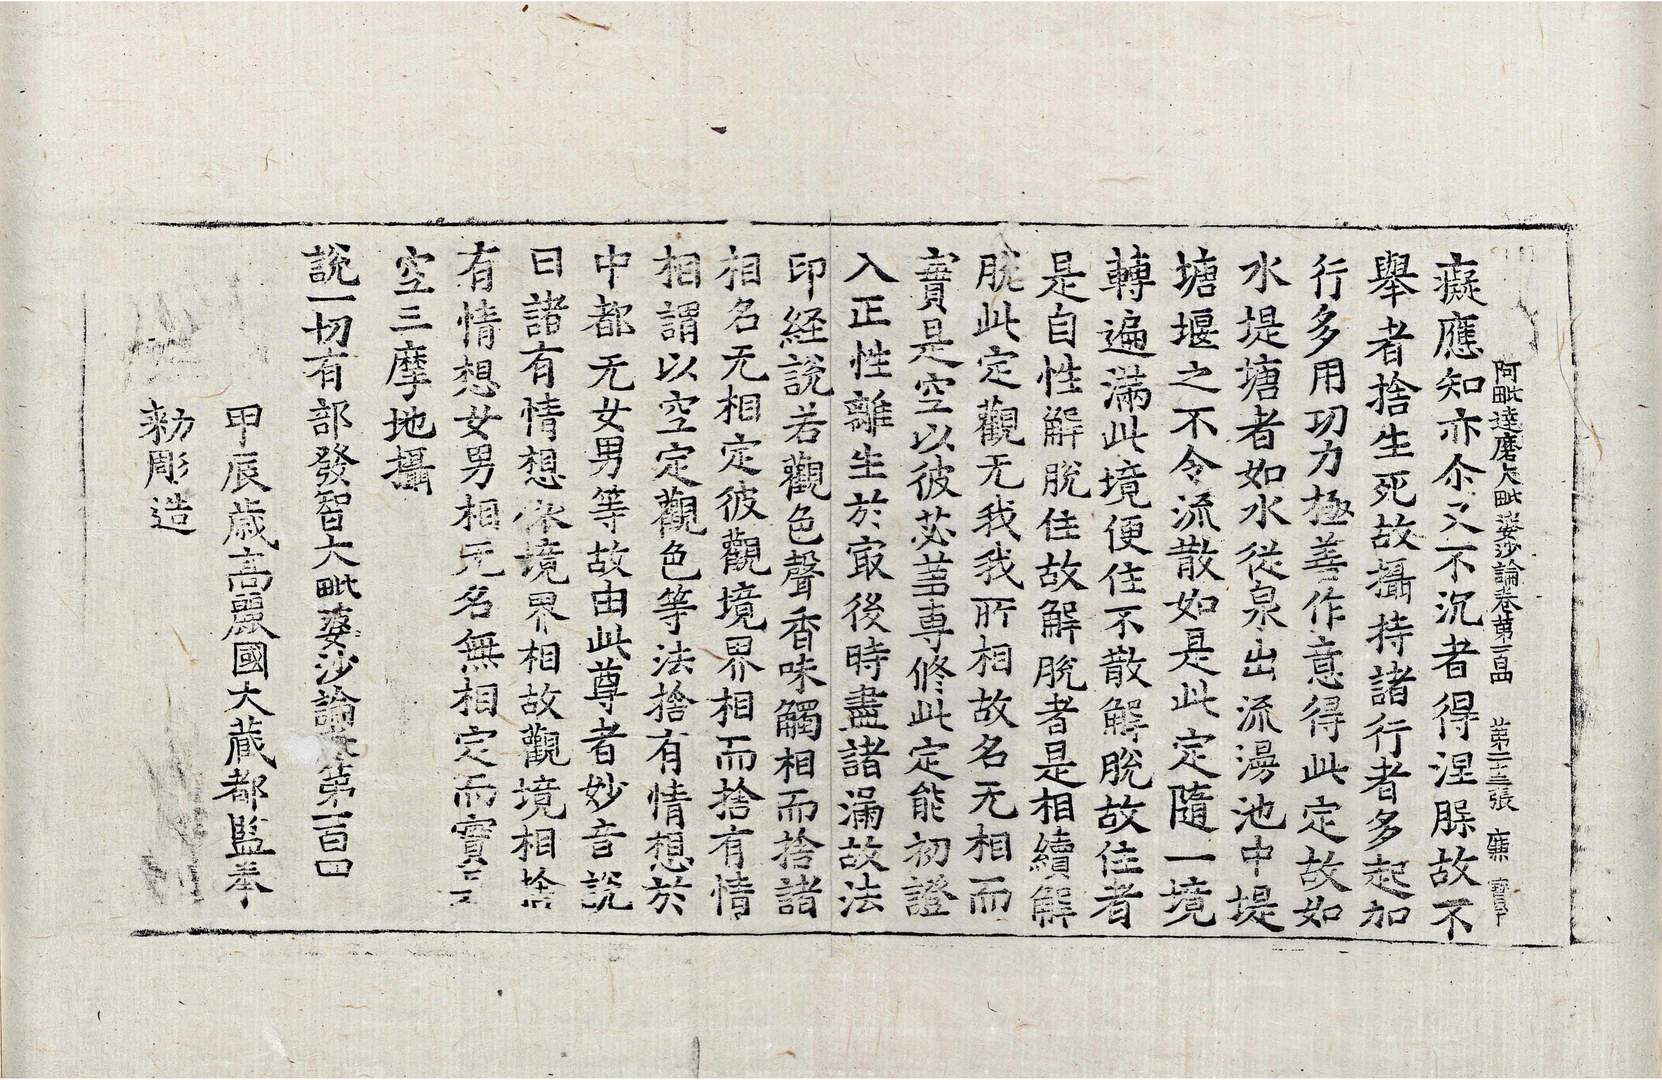 阿毗達磨大毗婆沙論卷第一百四 第二十三張 廉
癡應知亦尒又不沉者得涅槃故不
舉者捨生死故攝持諸行者多起加
行多用功力極善作意得此定故如
水堤塘者如水從泉出流漫池中堤
塘堰之不令流散如是此定隨一境
轉遍滿此境便住不散解脫故住者
是自性解脫住故解脫者是相續解
脫此定觀无我我所相故名无相而
實是空以彼苾芻專修此定能初證
入正性離生於㝡後時盡諸漏故法
印経說若觀色聲香味觸相而捨諸
相名无相定彼觀境界相而捨有情
相謂以空定觀色等法捨有情想於
中都无女男等故由此尊者妙音說
曰諸有情想依境界相故觀境相捨
有情想女男相无名無相定而實是
空三摩地攝
說一切有部發智大毗婆沙論卷第一百四
甲辰歲高麗國大藏都監奉
勑彫造